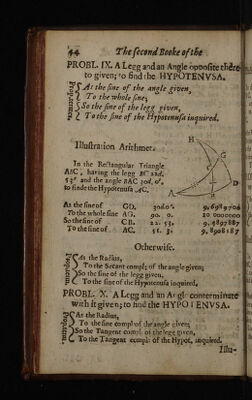 44 The second Booke of the
PROBL. IX. A Legg and an Angle opposite there
to given; to find the HYPOTENVSA.
Proportion.
As the sine of the angle given,
To the whole sine;
So the sine of the legg given,
To the sine of the Hypotenusa inquired.
Illustration Arithmet.
In the Rectangular Triangle
ABC, having the legg BC 22d,
53' and the angle BAC 30d, 0',
to finde the Hypotenusa AC.
H
G
C
A
D
B
As the sine of GD. 30d. 0'. 9,6989706
To the whole sine AG. 90. 0. 10 0000000
So the sine of CB. 22. 53. 9,5897887
To the sine of AC. 51. 3. 9,8908187
Otherwise.
Proportion.
As the Radius,
To the Secant compl; of the angle given;
So the sine of the legg given,
To the sine of the Hypotenusa inquired.
PROBL. X. A Legg and an Angle conterminate
with it given; to find the HYPOTENVSA.
Proportion.
As the Radius,
To the sine compl of the angle given;
So the Tangent compl. of the legg given,
To the Tangent compl: of the Hypot, inquired.
Illu-